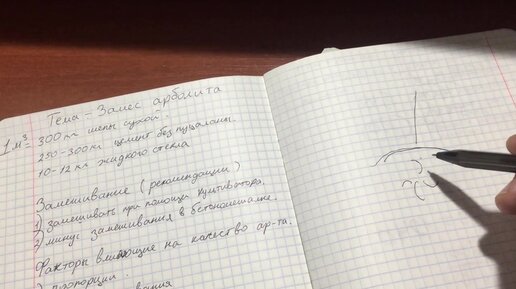 Тема – Замес арболита
1м³ = 300 кг щепы сухой.
250-300 кг цемент без пуццоланы.
10-12 кг жидкого стекла
Замешивание (рекомендации)
1) замешивать при помощи культиватора.
2) минус замешивания в бетономешалке.
Факторы влияющие на качество ар-та.
) пропорции.